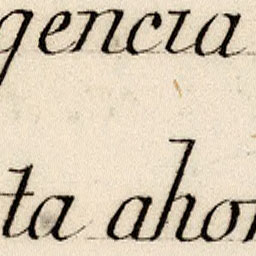 gencia
ta ahor